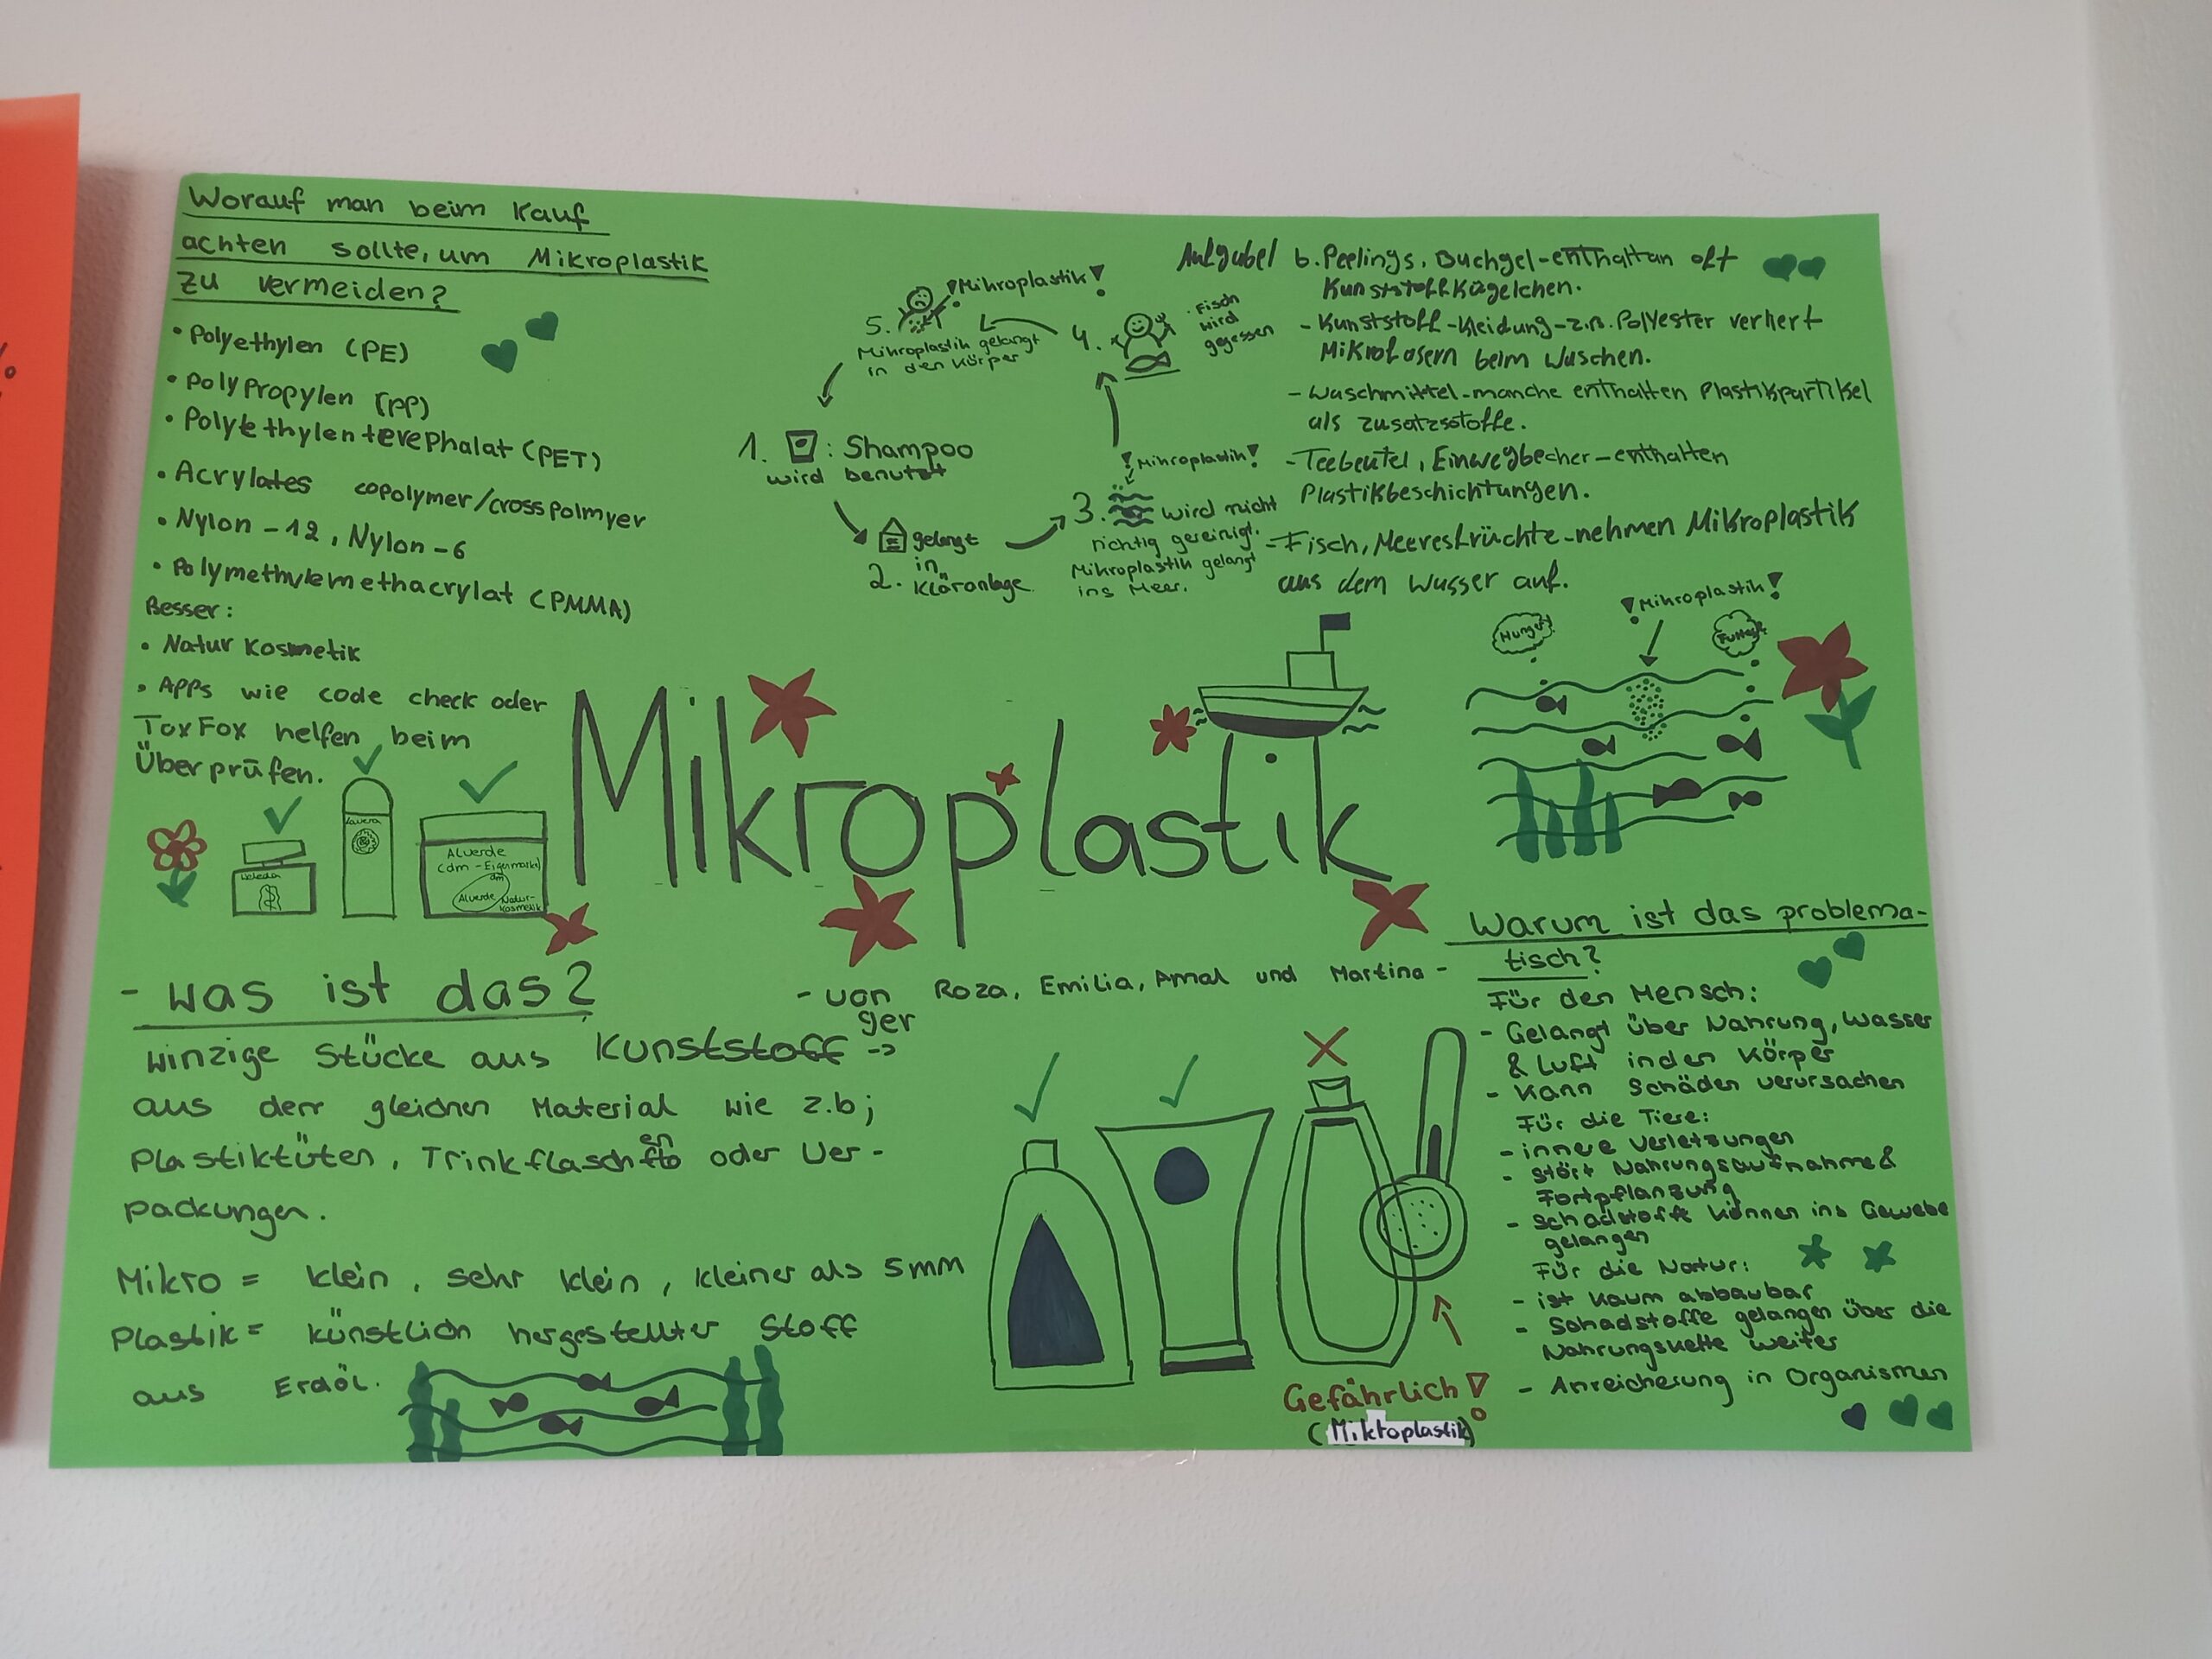 Worauf man beim Kauf
achten sollte, um Mikroplastik
zu vermeiden?
• Polyethylen (PE)
• Polypropylen (PP)
• Polyethylenterephalat (PET)
• Acrylates copolymer/crosspolmyer
• Nylon-12, Nylon-6
• Polymethylemethacrylat (PMMA)
Besser:
• Natur Kosmetik
• Apps wie code check oder
ToxFox helfen beim
Überprüfen.
Weleda
Lavera
Alverde
(dm-Eigenmarke)
dm
Alverde Natur-
kosmetik
1. : Shampoo
wird benutzt
2. gelangt
in
Kläranlage
! Mikroplastik!
3. wird nicht
richtig gereinigt.
Mikroplastik gelangt
ins Meer.
4. • Fisch
wird
gegessen
5. ! Mikroplastik!
Mikroplastik gelangt
in den Körper
Aufgabe1 b. Peelings, Duchgel-enthaltan oft
Kunststoffkügelchen.
- Kunststoff-Kleidung-z.B. Polyester verliert
Mikrofasern beim Waschen.
- Waschmittel-manche enthalten Plastikpartikel
als zusatzsstoffe.
- Teebeutel, Einwegbecher-enthalten
Plastikbeschichtungen.
- Fisch, Meeresfrüchte-nehmen Mikroplastik
aus dem Wasser auf.
Hunger
! Mikroplastik!
Mikroplastik
- von Roza, Emilia, Amal und Martina -
- was ist das?
winzige Stücke aus Kunststoff ->
ger
aus dem gleichen Material wie z.b;
Plastiktüten, Trinkflaschen oder Ver-
packungen.
Mikro = klein, sehr klein, kleiner als 5mm
Plastik = künstlich hergestellter Stoff
aus Erdöl.
Gefährlich!
(Mikroplastik)
Warum ist das problema-
tisch?
Für den Mensch:
- Gelangt über Nahrung, Wasser
& Luft in den Körper
- Kann Schäden verursachen
Für die Tiere:
- innere Verletzungen
- stört Nahrungsaufnahme &
Fortpflanzung
- Schadstoffe können ins Gewebe
gelangen
Für die Natur:
- ist kaum abbaubar
- Schadstoffe gelangen über die
Nahrungskette weiter
- Anreicherung in Organismen